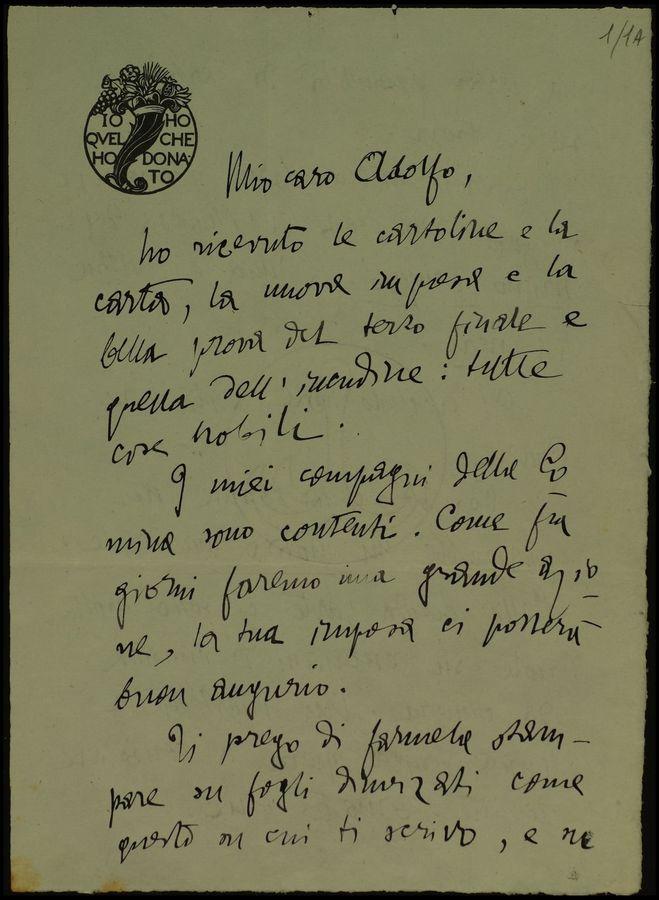 1/1A
IO HO
QVEL CHE
HO DONA-
TO
Mio caro Adolfo,
ho ricevuto le cartoline e la
carta, la nuova impresa e la
bella prova del terzo finale e
quella dell'incudine: tutte
cose nobili.
I miei compagni della Co
mina sono contenti. Come fra
giorni faremo una grande azio-
ne, la tua impresa ci porterà
buon augurio.
Ti prego di farmela stam-
pare su fogli dimezzati come
questo su cui ti scrivo, e su